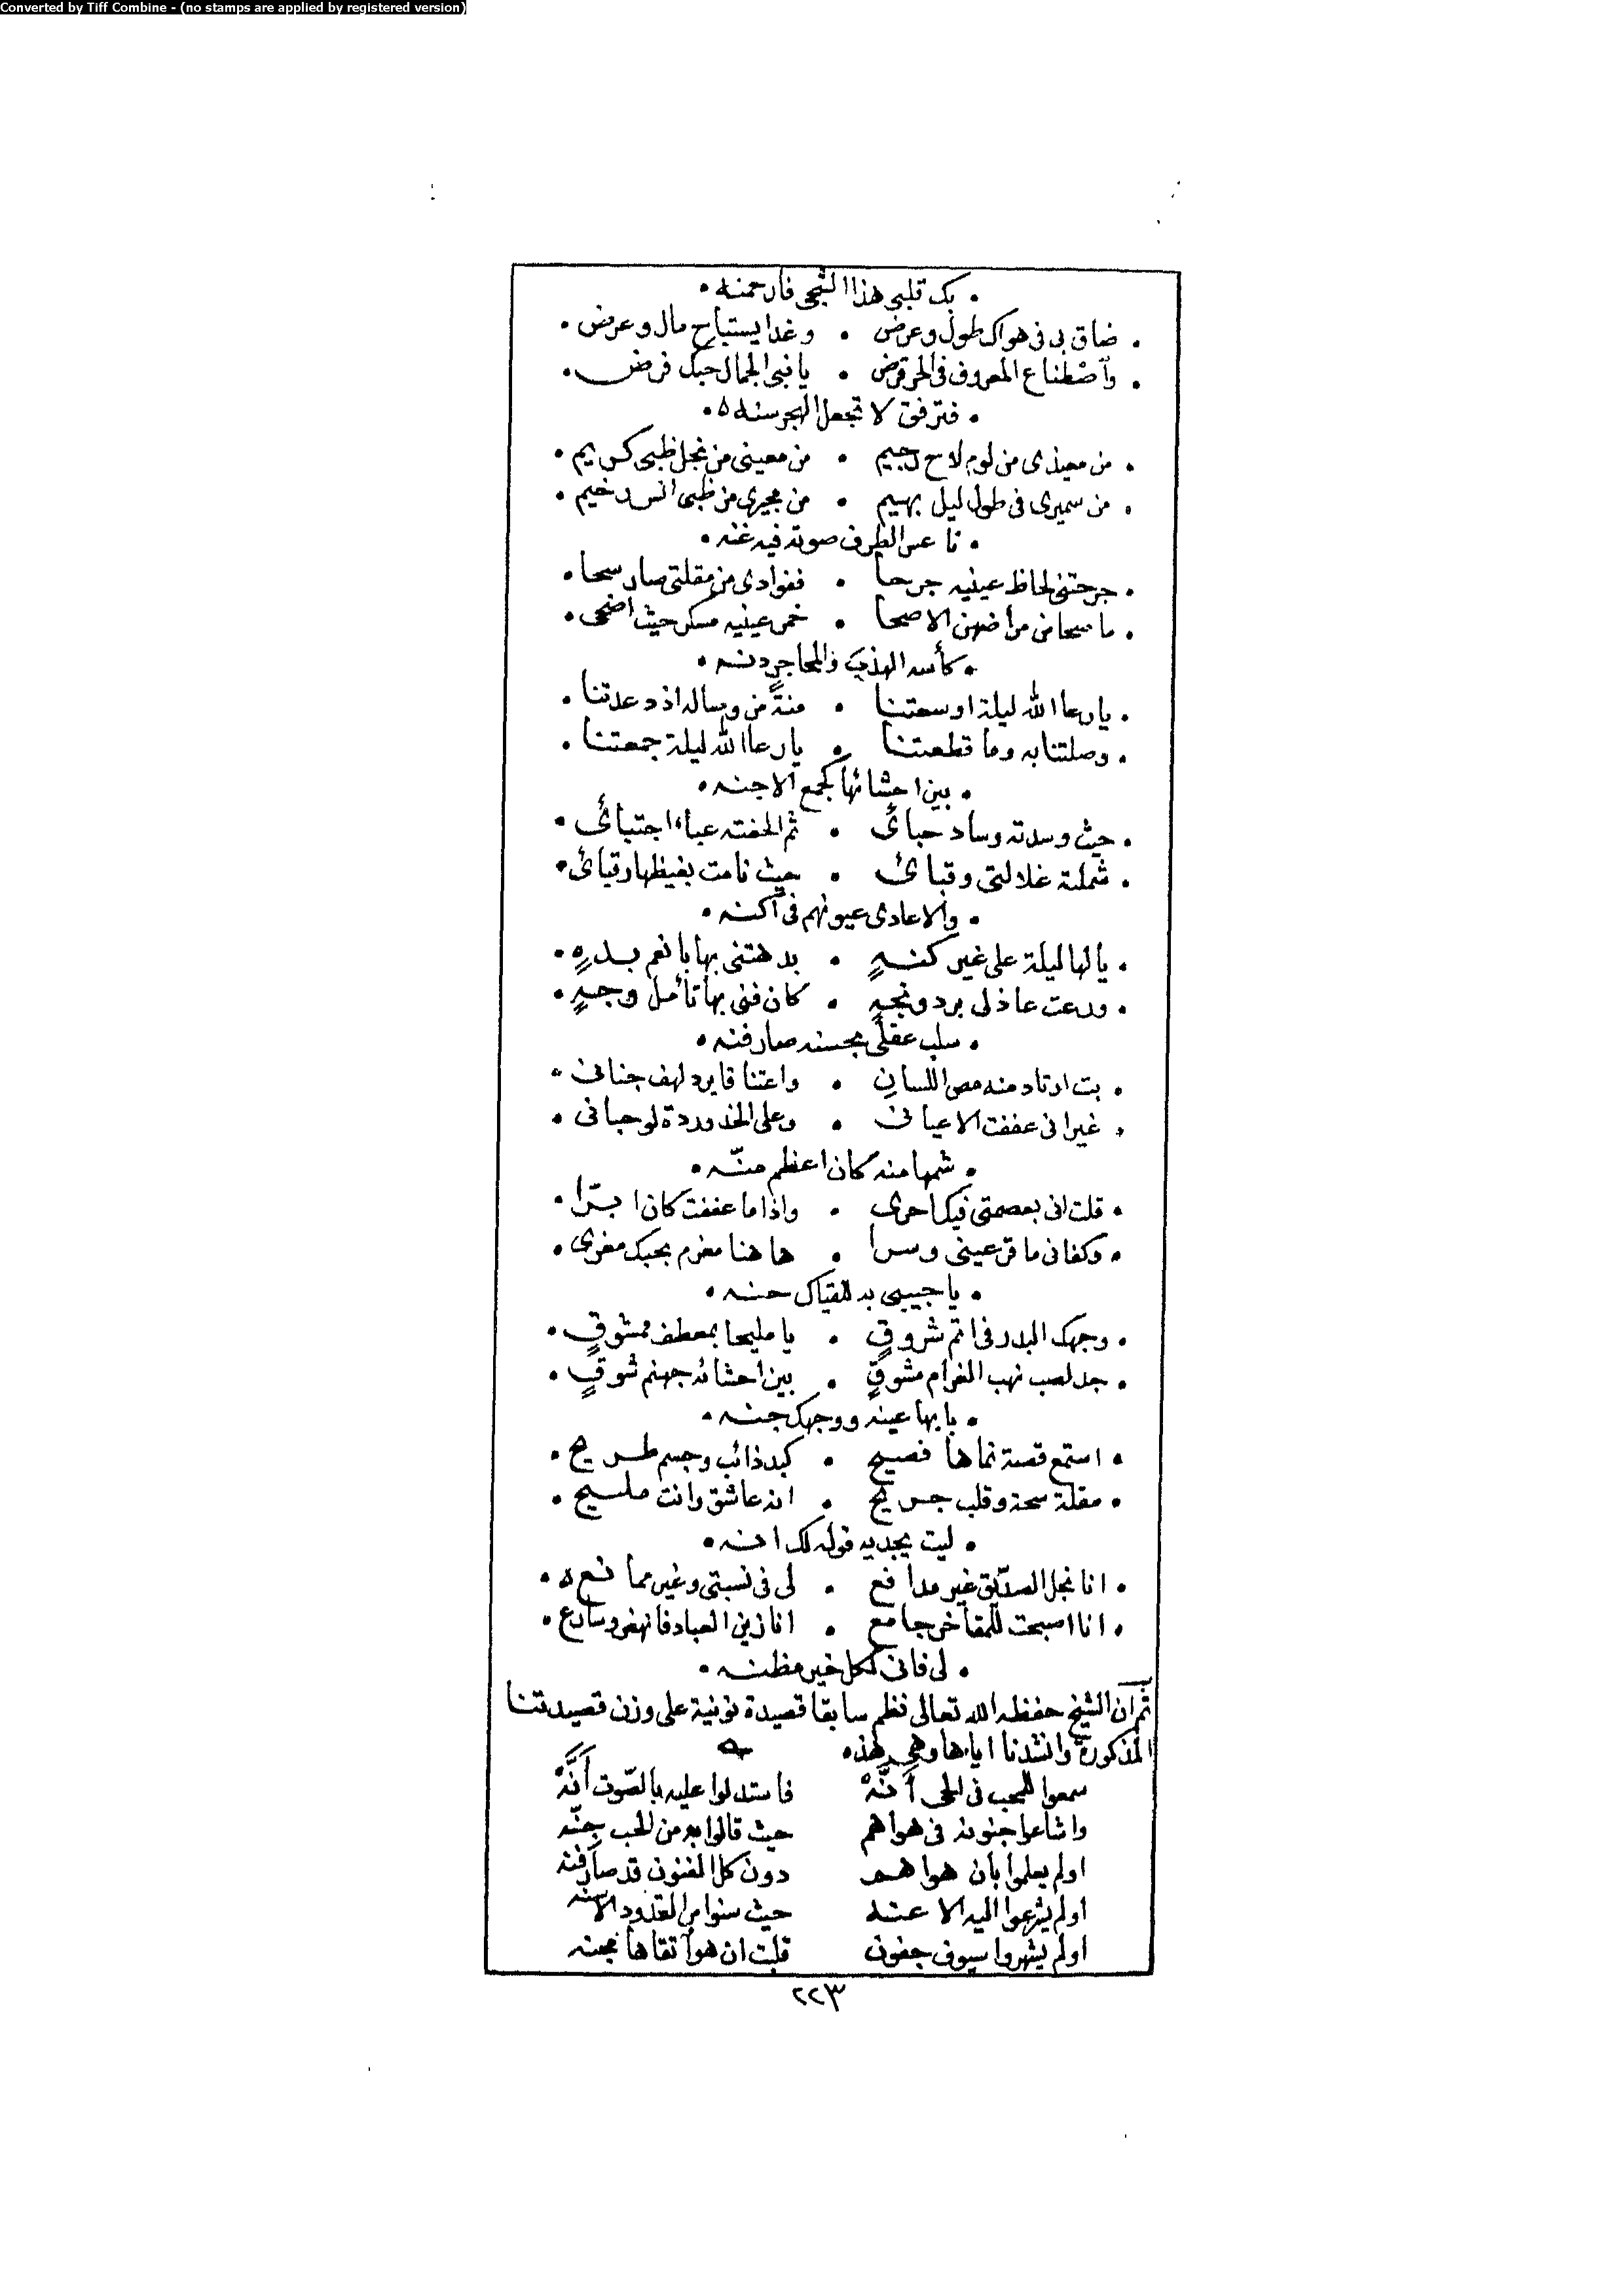 Converted by Tiff Combine - (no stamps are applied by registered version)
• بك قلبى هذا الشجى فارحمنه •
• ضاق بى فى هواك طول وعرض • وغدا يستباح مال وعرض •
• واصطناع المعروف فى الحر قرض • يا نبى الجمال حبك فرض •
• فترفق لا تجعل الهجر سنه •
• من معيذى من لوم لاح رجيم • من معينى من نجل ظبى كريم •
• من سميرى فى طول ليل بهيم • من مجيرى من ظبى انس رخيم •
• ناعس الطرف صوته فيه غنه •
• جرحتنى لحاظ عينيه جرحا • ففوادى من مقلتى صار سحا •
• ما صحا من مراضهن الا صحا • خمر عينيه مسكر حيث اضحى •
• كأسه الهذب والمحاجر دنه •
• يا رعا الله ليلة اوسعتنا • منةً من وصاله اذ دعتنا •
• وصلتنا به وما قطعتنا • يا رعا الله ليلة جمعتنا •
• بين احشائها كجمع الاجنه •
• حيث وسدته وساد حبائى • ثم الحفته عباء اجتبائى •
• شملته غلالتى وقبائى • حيث نامت بغيظها رقبائى •
• والاعادى عيونهم فى اكنه •
• يا لها ليلة على غير كنهٍ • بدهتنى بها بانعم بدهٍ •
• ورعت عاذلى برد ونجهٍ • كان فنى بها تأمل وجهٍ •
• سلب عقلى بحسنه صار فنه •
• بت ارتاد منه مص اللسانِ • واعتناقا يرد لهف جنانى •
• غير انى عففت الا عيانى • وعلى الخد وردة لو حبانى •
• شمها منه كان اعظم منّه •
• قلت انى بعصمتى فيك احرى • واذا ما عففت كان ابرّا •
• وكفانى ما قر عينى وسرا • ها هنا مغرم بحبك مغرى •
• يا حبيبى بد للقياك حنه •
• وجهك البدر فى اتم شروقٍ • يا مليحا بمعطف ممشوقٍ •
• جد لصب نهب الغرام مشوقٍ • بين احشائه جهنم شوقٍ •
• يا بها عينه ووجهك جنه •
• استمع قصة نماها فصيح • كبد ذائب وجسم طريح •
• مقلة سحة وقلب جريح • انه عاشق وانت مليح •
• ليت يجديه قوله لك انه •
• انا نجل الصدّيق غير مدافع • لى فى نسبتى وغير ممانع •
• انا اصبحت للمفاخر جامع • انا زين العباد فانهض وسارع •
• لى فانى لكل خير مظنه •
ثم ان الشيخ حفظه الله تعالى نظم سابقا قصيدة نونية على وزن قصيدتنا
المذكورة وانشدنا اياها وهى هذه
سمعوا للمحب فى الحى أنّهْ فاستدلوا عليه بالصّوت أَنَّهْ
واشاعوا جنونه فى هواهم حيث قالوا به من الحب جِنّه
اولم يعلموا بأن هواهم دون كل الفنون قد صار فنه
اولم يشرعوا اليه الاعنه حيث سنوا من القدود الاسنه
اولم يشهروا سيوف جفون قلت ان هو اتقاها بجنه
٢٢٣